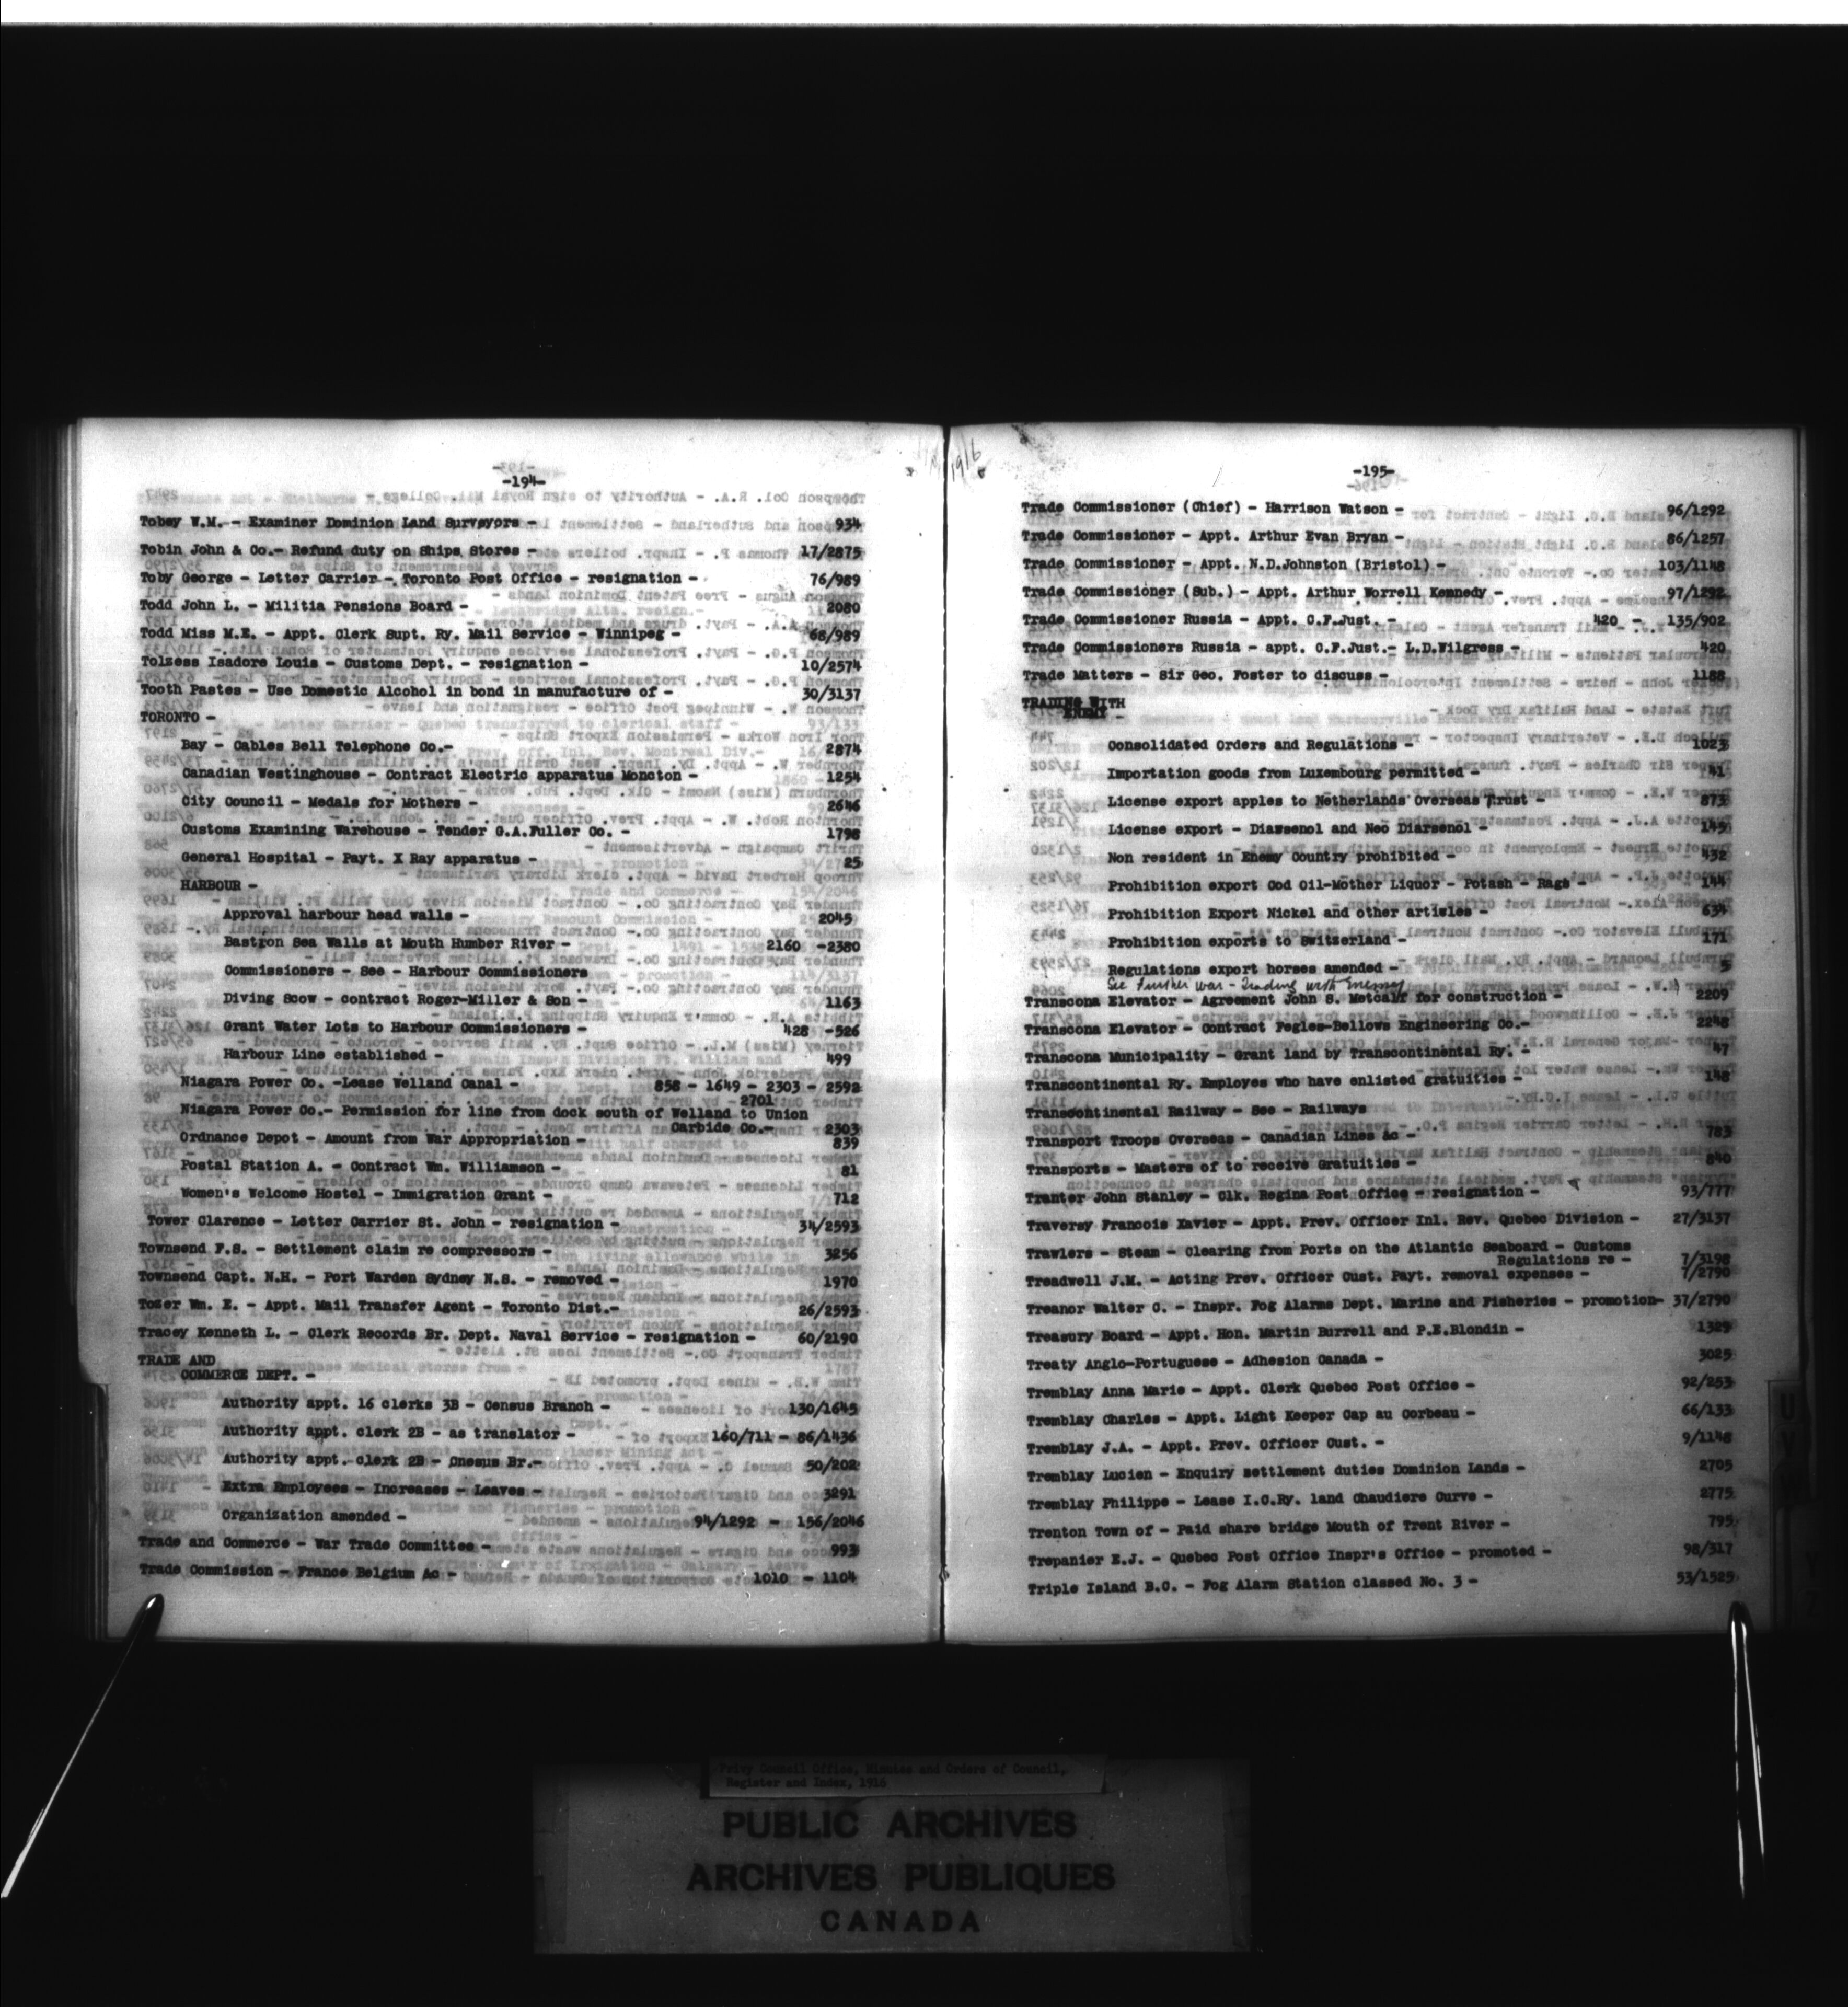 -194-
Tobey W.M. - Examiner Dominion Land Surveyors - 934
Tobin John & Co.- Refund duty on Ships Stores - 17/2875
Toby George - Letter Carrier - Toronto Post Office - resignation - 76/989
Todd John L. - Militia Pensions Board - 2080
Todd Miss M.E. - Appt. Clerk Supt. Ry. Mail Service - Winnipeg - 68/989
Tolzess Isadore Louis - Customs Dept. - resignation - 10/2574
Tooth Pastes - Use Domestic Alcohol in bond in manufacture of - 30/3137
TORONTO -
Bay - Cables Bell Telephone Co.- 2874
Canadian Westinghouse - Contract Electric apparatus Moncton - 1254
City Council - Medals for Mothers - 2646
Customs Examining Warehouse - Tender G.A.Fuller Co. - 1798
General Hospital - Payt. X Ray apparatus - 25
HARBOUR -
Approval harbour head walls - 2045
Bastron Sea Walls at Mouth Humber River - 2160 -2380
Commissioners - See - Harbour Commissioners
Diving Scow - contract Roger-Miller & Son - 1163
Grant Water Lots to Harbour Commissioners - 428 -526
Harbour Line established - 499
Niagara Power Co. -Lease Welland Canal - 858 - 1649 - 2303 - 2592
- 2701
Niagara Power Co.- Permission for line from dock south of Welland to Union
Carbide Co.- 2303
Ordnance Depot - Amount from War Appropriation - 839
Postal Station A. - Contract Wm. Williamson - 81
Women's Welcome Hostel - Immigration Grant - 712
Tower Clarence - Letter Carrier St. John - resignation - 34/2593
Townsend F.S. - Settlement claim re compressors - 3256
Townsend Capt. N.H. - Port Warden Sydney N.S. - removed - 1970
Tozer Wm. E. - Appt. Mail Transfer Agent - Toronto Dist.- 26/2593
Tracey Kenneth L. - Clerk Records Br. Dept. Naval Service - resignation - 60/2190
TRADE AND
COMMERCE DEPT. -
Authority appt. 16 clerks 3B - Census Branch - 130/1645
Authority appt. clerk 2B - as translator - 160/711 - 86/1436
Authority appt. clerk 2B - Cnesus Br.- 50/202
Extra Employees - Increases - Leaves - 3291
Organization amended - 94/1292 - 156/2046
Trade and Commerce - War Trade Committee - 993
Trade Commission - France Belgium &c - 1010 - 1104
1916
-195-
Trade Commissioner (Chief) - Harrison Watson - 96/1292
Trade Commissioner - Appt. Arthur Evan Bryan - 86/1257
Trade Commissioner - Appt. N.D.Johnston (Bristol) - 103/1148
Trade Commissioner (Sub.) - Appt. Arthur Worrell Kennedy - 97/1292
Trade Commissioner Russia - Appt. C.F.Just. - 420 - 135/902
Trade Commissioners Russia - appt. C.F.Just.- L.D.Wilgress - 420
Trade Matters - Sir Geo. Foster to discuss - 1188
TRADING WITH
ENEMY -
Consolidated Orders and Regulations - 1023
Importation goods from Luxembourg permitted - 41
License export apples to Netherlands Overseas Trust - 873
License export - Diarsenol and Neo Diarsenol - 145
Non resident in Enemy Country prohibited - 432
Prohibition export Cod Oil-Mother Liquor - Potash - Rags - 144
Prohibition Export Nickel and other articles - 634
Prohibition exports to Switzerland - 171
Regulations export horses amended - 5
See Further War - Trading with Enemy
Transcona Elevator - Agreement John S. Metcalf for construction - 2209
Transcona Elevator - Contract Fegles-Bellows Engineering Co.- 2248
Transcona Municipality - Grant land by Transcontinental Ry. - 47
Transcontinental Ry. Employes who have enlisted gratuities - 148
Transcontinental Railway - See - Railways
Transport Troops Overseas - Canadian Lines &c - 783
Transports - Masters of to receive Gratuities - 840
Tranter John Stanley - Clk. Regina Post Office - resignation - 93/777
Traversy Francois Xavier - Appt. Prev. Officer Inl. Rev. Quebec Division - 27/3137
Trawlers - Steam - Clearing from Ports on the Atlantic Seaboard - Customs
Regulations re - 7/3198
Treadwell J.M. - Acting Prev. Officer Cust. Payt. removal expenses - 7/2790
Treanor Walter C. - Inspr. Fog Alarms Dept. Marine and Fisheries - promotion- 37/2790
Treasury Board - Appt. Hon. Martin Burrell and P.E.Blondin - 1329
Treaty Anglo-Portuguese - Adhesion Canada - 3025
Tremblay Anna Marie - Appt. Clerk Quebec Post Office - 92/253
Tremblay Charles - Appt. Light Keeper Cap au Corbeau - 66/133
Tremblay J.A. - Appt. Prev. Officer Cust. - 9/1148
Tremblay Lucien - Enquiry settlement duties Dominion Lands - 2705
Tremblay Philippe - Lease I.C.Ry. land Chaudiere Curve - 2775
Trenton Town of - Paid share bridge Mouth of Trent River - 795
Trepanier E.J. - Quebec Post Office Inspr's Office - promoted - 98/317
Triple Island B.C. - Fog Alarm Station classed No. 3 - 53/1525
Privy Council Office, Minutes and Orders of Council,
Register and Index, 1916
PUBLIC ARCHIVES
ARCHIVES PUBLIQUES
CANADA